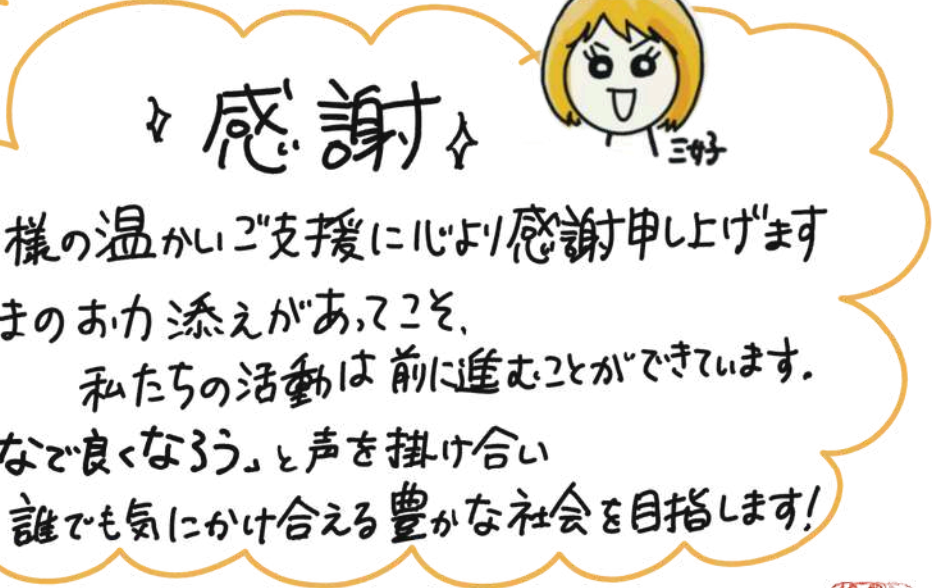 感謝
三好子
様の温かいご支援に心より感謝申し上げます
まのお力添えがあってこそ、
私たちの活動は前に進むことができています.
なで良くなろう」と声を掛け合い
誰でも気にかけ合える豊かな社会を目指します!